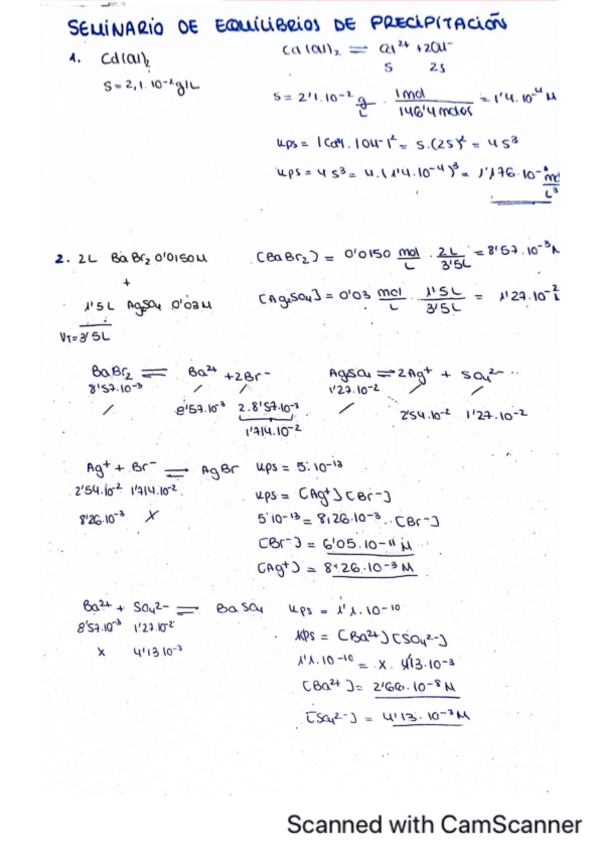 SEMINARIO DE EQUILIBRIOS DE PRECIPITACIÓN
1. Cd(OH)₂
S = 2,1·10⁻² g/L
Cd(OH)₂ ⇌ Cd²⁺ + 2OH⁻
S 2S
S = 2'1·10⁻² g/L · 1 mol / 146'4 = 1'4·10⁻⁴ M
Kps = |Cd²⁺|·|OH⁻|² = S·(2S)² = 4S³
Kps = 4S³ = 4·(1'4·10⁻⁴)³ = 1'176·10⁻
2. 2L BaBr₂ 0'0150M
+
1'5L Ag₂SO₄ 0'03M
VT = 3'5L
[BaBr₂] = 0'0150 mol/L · 2L/3'5L = 8'57·10⁻³
[Ag₂SO₄] = 0'03 mol/L · 1'5L/3'5L = 1'27·10⁻²
BaBr₂ ⇌ Ba²⁺ + 2Br⁻
8'57·10⁻³ / /
/ 8'57·10⁻³ 2·8'57·10⁻³
1'714·10⁻²
AgSO₄ ⇌ 2Ag⁺ + SO₄²⁻
1'27·10⁻² / /
/ 2'54·10⁻² 1'27·10⁻²
Ag⁺ + Br⁻ ⇌ AgBr Kps = 5·10⁻¹³
2'54·10⁻² 1'714·10⁻² Kps = [Ag⁺][Br⁻]
8'26·10⁻³ X 5·10⁻¹³ = 8,26·10⁻³·[Br⁻]
[Br⁻] = 6'05·10⁻¹¹ M
[Ag⁺] = 8'26·10⁻³ M
Ba²⁺ + SO₄²⁻ ⇌ BaSO₄ Kps = 1'1·10⁻¹⁰
8'57·10⁻³ 1'27·10⁻² Kps = [Ba²⁺][SO₄²⁻]
X 4'13·10⁻³ 1'1·10⁻¹⁰ = X·4'13·10⁻³
[Ba²⁺] = 2'66·10⁻⁸ M
[SO₄²⁻] = 4'13·10⁻³ M
Scanned with CamScanner